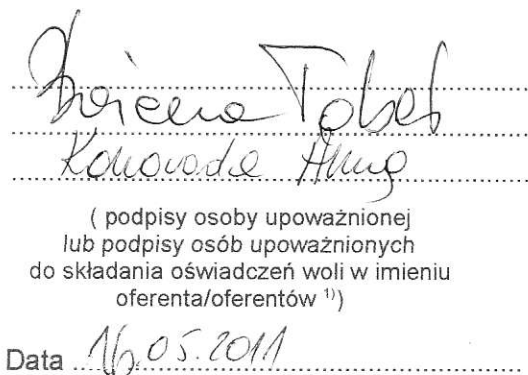 Anna
( podpisy osoby upoważnionej
lub podpisy osób upoważnionych
do składania oświadczeń woli w imieniu
oferenta/oferentów ¹⁾)
Data 16.05.2011